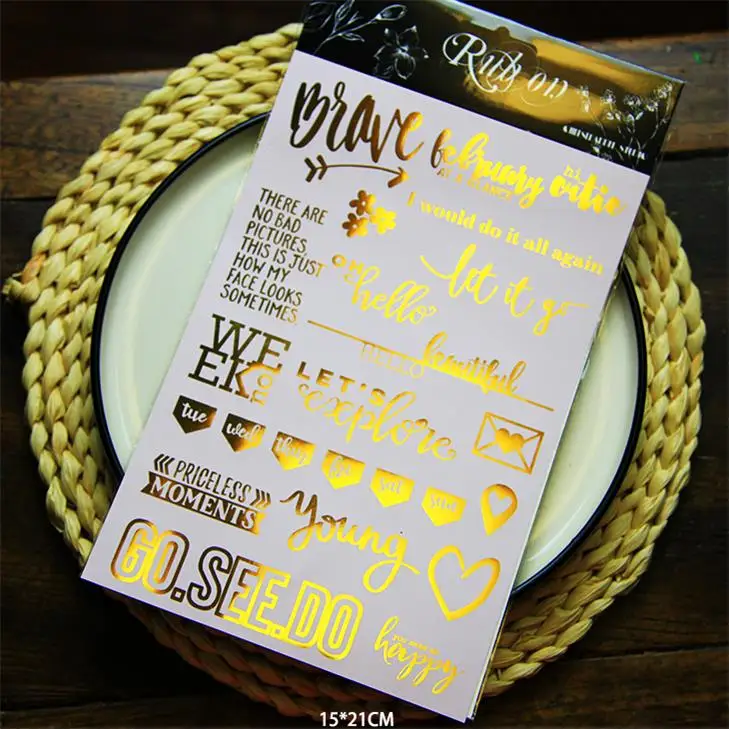 Rub on
Brave
february
AT A GLANCE
hi
I would do it all again
THERE ARE
NO BAD
PICTURES.
THIS IS JUST
HOW MY
FACE LOOKS
SOMETIMES.
let it go
OH
hello
HELLO
beautiful
WE
EK
no
LET'S
explore
tue
wed
thu
fri
sat
sun
PRICELESS
MOMENTS
young
GO.SEE.DO
happy
15*21CM